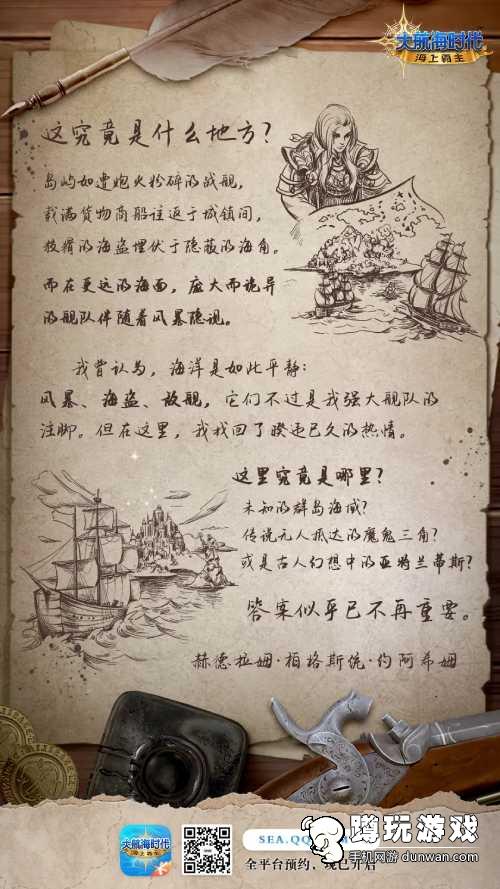 大航海时代
海上霸主
这究竟是什么地方?
岛屿如遭炮火粉碎的战舰,
载满货物商船往返于城镇间,
狡猾的海盗埋伏于隐蔽的海角。
而在更远的海面,庞大而诡异
的舰队伴随着风暴隐现。
我曾认为,海洋是如此平静:
风暴、海盗、敌舰,它们不过是我强大舰队的
注脚。但在这里,我找回了暌违已久的热情。
这里究竟是哪里?
未知的群岛海域?
传说无人抵达的魔鬼三角?
或是古人幻想中的亚特兰蒂斯?
答案似乎已不再重要。
赫德拉姆·柏格斯统·约阿希姆
大航海时代
海上霸主
SEA.QQ
全平台预约,现已开启
蹲玩游戏
手机网游 dunwan.com